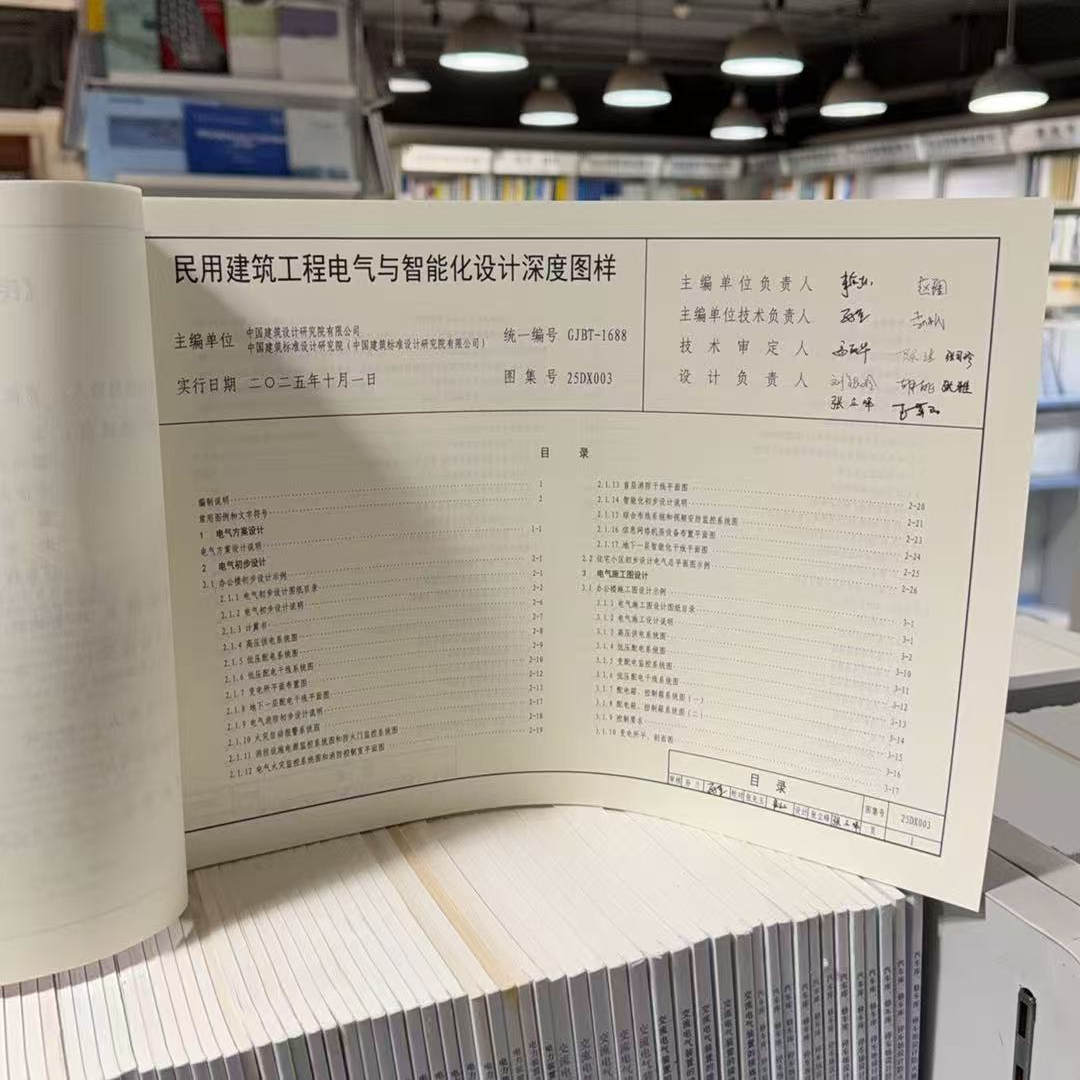 民用建筑工程电气与智能化设计深度图样
主编单位 中国建筑设计研究院有限公司
中国建筑标准设计研究院(中国建筑标准设计研究院有限公司)
统一编号 GJBT-1688
实行日期 二〇二五年十月一日
图集号 25DX003
主编单位负责人
主编单位技术负责人
技术审定人
设计负责人
目 录
编制说明 1
常用图例和文字符号 2
1 电气方案设计
电气方案设计说明 1-1
2 电气初步设计
2.1 办公楼初步设计示例 2-1
2.1.1 电气初步设计图纸目录 2-1
2.1.2 电气初步设计说明 2-2
2.1.3 计算书 2-6
2.1.4 高压供电系统图 2-7
2.1.5 低压配电系统图 2-8
2.1.6 低压配电干线系统图 2-9
2.1.7 变电所平面布置图 2-10
2.1.8 地下一层配电干线平面图 2-12
2.1.9 电气消防初步设计说明
2.1.10 火灾自动报警系统图 2-17
2.1.11 消防设施电源监控系统图和防火门监控系统图 2-18
2.1.12 电气火灾监控系统图和消防控制室平面图 2-19
2.1.13 首层消防干线平面图 2-20
2.1.14 智能化初步设计说明 2-21
2.1.15 综合布线系统和视频安防监控系统图 2-23
2.1.16 信息网络机房设备布置平面图 2-24
2.1.17 地下一层智能化干线平面图 2-25
2.2 住宅小区初步设计电气总平面图示例 2-26
3 电气施工图设计
3.1 办公楼施工图设计示例 3-1
3.1.1 电气施工图设计图纸目录 3-1
3.1.2 电气施工设计说明 3-2
3.1.3 高压供电系统图 3-10
3.1.4 低压配电系统图 3-11
3.1.5 变配电监控系统图 3-12
3.1.6 低压配电干线系统图 3-13
3.1.7 配电箱、控制箱系统图(一) 3-14
3.1.8 配电箱、控制箱系统图(二) 3-15
3.1.9 控制要求 3-16
3.1.10 变电所平、剖面图 3-17
目 录
图集号 25DX003
审核 校对 设计 页 1
电力装置
交流电气装置的接地
汽车库